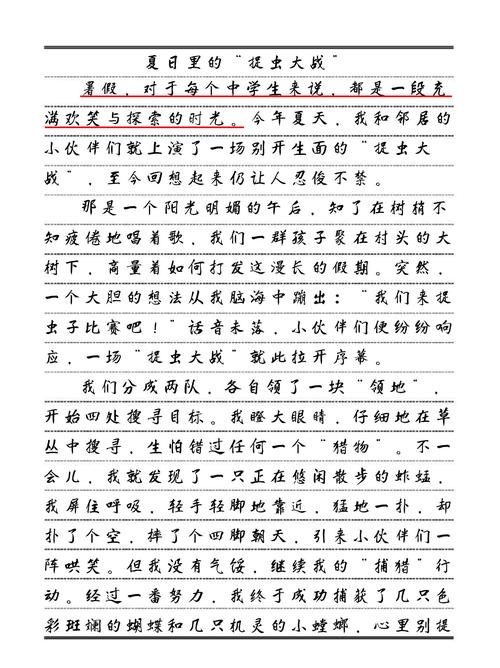 夏日里的“捉虫大战”
暑假，对于每个中学生来说，都是一段充
满欢笑与探索的时光。今年夏天，我和邻居的
小伙伴们就上演了一场别开生面的“捉虫大
战”，至今回想起来仍让人忍俊不禁。
那是一个阳光明媚的午后，知了在树梢不
知疲倦地唱着歌，我们一群孩子聚在村头的大
树下，商量着如何打发这漫长的假期。突然，
一个大胆的想法从我脑海中蹦出：“我们来捉
虫子比赛吧！”话音未落，小伙伴们便纷纷响
应，一场“捉虫大战”就此拉开序幕。
我们分成两队，各自领了一块“领地”，
开始四处搜寻目标。我瞪大眼睛，仔细地在草
丛中搜寻，生怕错过任何一个“猎物”。不一
会儿，我就发现了一只正在悠闲散步的蚱蜢，
我屏住呼吸，轻手轻脚地靠近，猛地一扑，却
扑了个空，摔了个四脚朝天，引来小伙伴们一
阵哄笑。但我没有气馁，继续我的“捕猎”行
动。经过一番努力，我终于成功捕获了几只色
彩斑斓的蝴蝶和几只机灵的小螳螂，心里别提